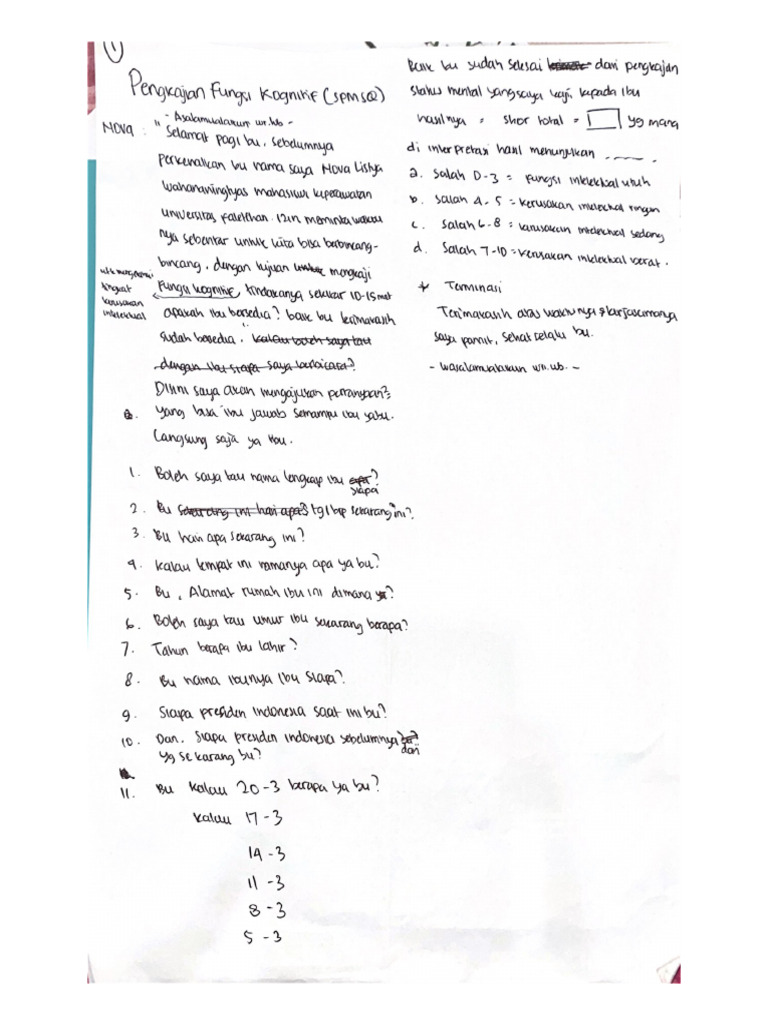 1
Pengkajian Fungsi Kognitif (SPMSQ)
- Asalamualaikum wr.wb -
Nova : "Selamat pagi bu, sebelumnya
perkenalkan bu nama saya Nova Listya
Wahananingtyas mahasiswi keperawatan
universitas faletehan. Izin meminta waktu
nya sebentar untuk kita bisa berbincang-
bincang, dengan tujuan untuk mengkaji
utk mengetahui tingkat kerusakan intelektual
Fungsi kognitif tindakanya sekitar 10-15 mnt
apakah ibu bersedia? baik bu terimakasih
sudah bersedia. kalau boleh saya tau
dengan ibu siapa saya berbicara?
Disini saya akan mengajukan pertanyaan²
yang bisa ibu jawab semampu ibu yabu.
Langsung saja ya ibu.
1. Boleh saya tau nama lengkap ibu siapa?
2. Bu sekarang ini hari apa? tgl brp sekarang ini?
3. Bu hari apa sekarang ini?
4. Kalau tempat ini namanya apa ya bu?
5. Bu, Alamat rumah ibu ini dimana ya?
6. Boleh saya tau umur ibu sekarang berapa?
7. Tahun berapa ibu lahir?
8. Bu nama ibunya ibu siapa?
9. Siapa presiden indonesia saat ini bu?
10. Dan. Siapa presiden indonesia sebelumnya dari
yg sekarang bu?
11. Bu kalau 20-3 berapa ya bu?
kalau 17-3
14-3
11-3
8-3
5-3
Baik bu sudah selesai dari pengkajian
status mental yang saya kaji kepada ibu
hasilnya = skor total = yg mana
di interpretasi hasil menunjukan .......
a. Salah 0-3 = Fungsi intelektual utuh
b. Salah 4-5 = kerusakan intelektual ringan
c. Salah 6-8 = kerusakan intelektual sedang
d. Salah 7-10 = kerusakan intelektual berat.
* Terminasi
Terimakasih atas waktu nya & kerjasamanya
saya pamit, sehat selalu bu.
- wasalamualaikum wr.wb. -